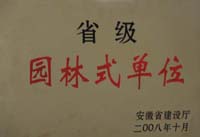 省级
园林式单位
安徽省建设厅
二〇〇八年十月